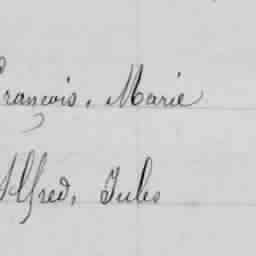 François, Marie
Alfred, Jules